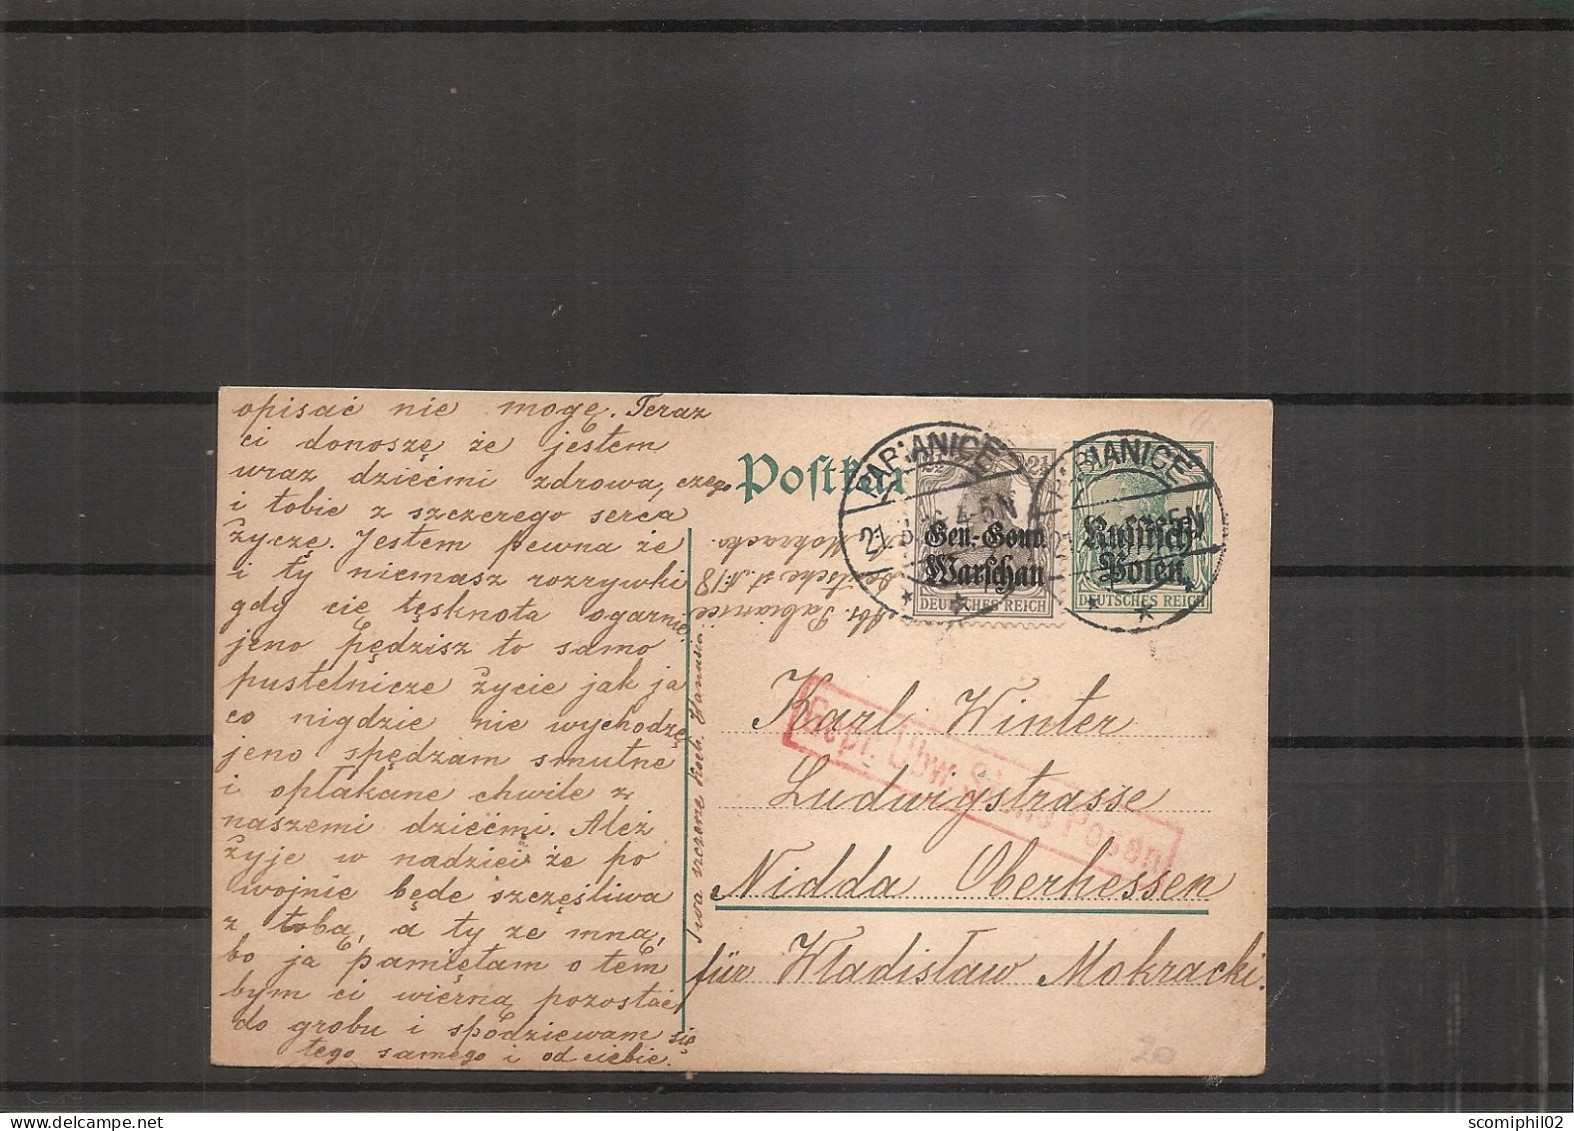 opisać nie mogę. Teraz
ci donoszę że jestem
wraz dziećmi zdrowa, czego
i tobie z szczerego serca
życzę. Jestem pewna że
i ty niemasz rozrywki
gdy cię tęsknota ogarnie
jeno pędzisz to samo
pustelnicze życie jak ja
co nigdzie nie wychodzę
jeno spędzam smutne
i opłakane chwile z
naszemi dziećmi. Ależ
żyje w nadziei że po
wojnie będe szczęśliwa
z tobą, a ty ze mną,
bo ja pamiętam o tem
bym ci wierną pozostać
do grobu i spodziewam się
tego samego i od ciebie.
Twa szczerze koch.
Postkar
PABIANICE
21. 4-5N
2½
Gen.-Gouv.
Warschau
DEUTSCHES REICH
PABIANICE
5N
5
Russisch-
Polen
DEUTSCHES REICH
Abs. Mokracka
Pabianice
Deutsche st. N. 18
Gepr. Übw. Stelle Posen
Karl Winter
Ludwigstrasse
Nidda Oberhessen
für Władisław Mokracki.
20
scomiphil02